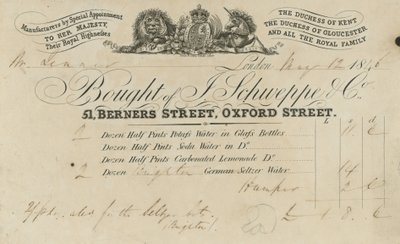 Manufacturers by Special Appointment
TO HER MAJESTY,
Their Royal Highnesses
THE DUCHESS OF KENT
THE DUCHESS OF GLOUCESTER
AND ALL THE ROYAL FAMILY
London May 12 1846
Bought of J. Schweppe & Co
51, BERNERS STREET, OXFORD STREET.
Dozen Half Pints Potass Water in Glass Bottles
Dozen Half Pints Soda Water in Do
Dozen Half Pints Carbonated Lemonade Do
2 Dozen Brighton German Seltzer Water 14
Hamper
for the Seltzer